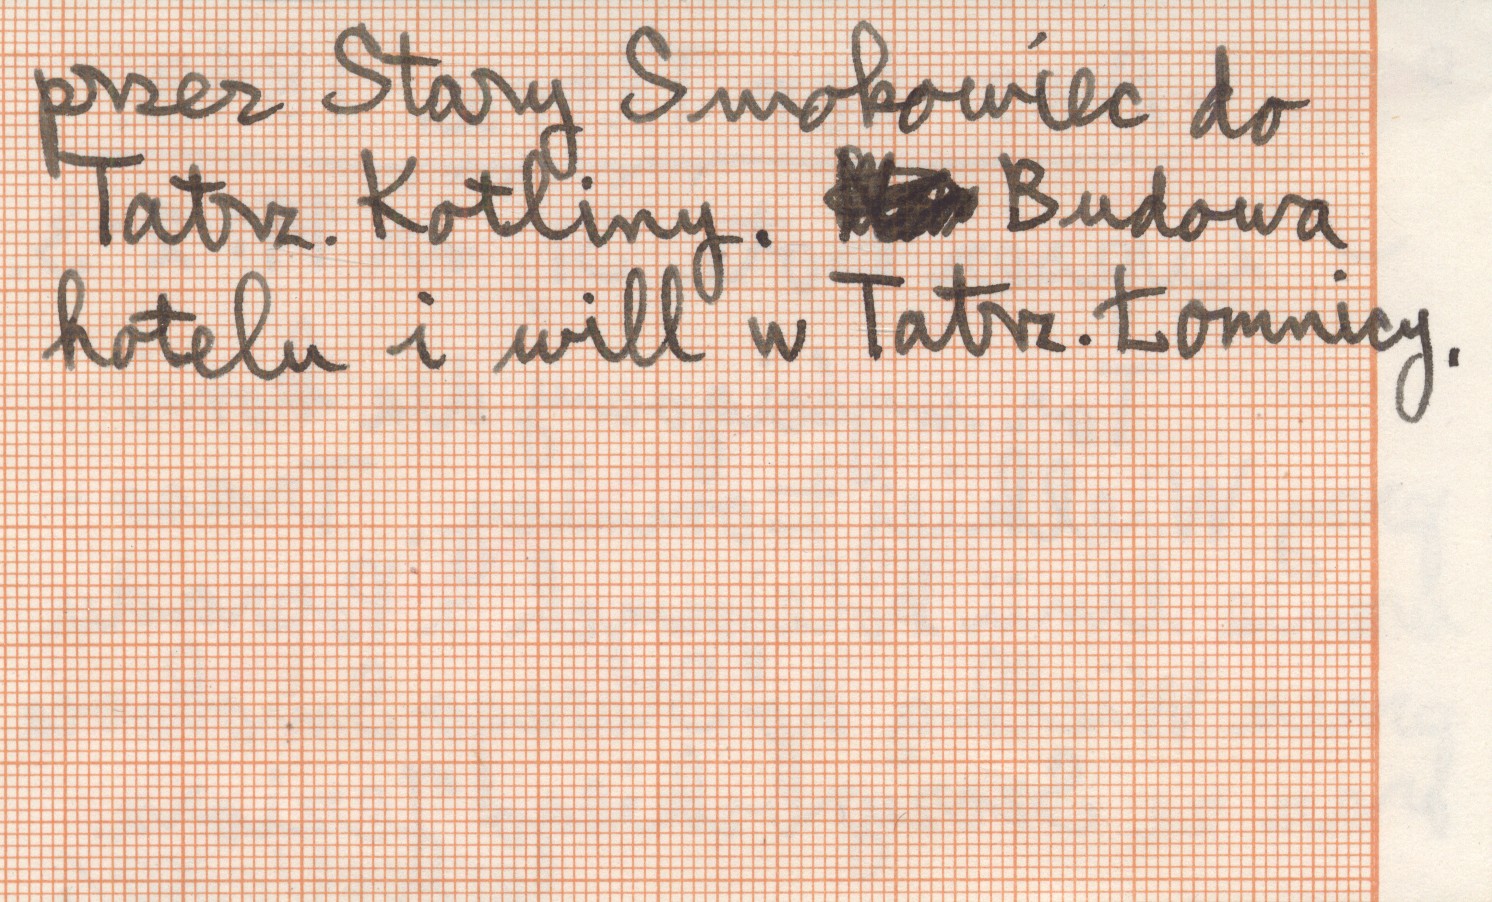 przez Stary Smokowiec do
Tatrz. Kotliny. Budowa
hotelu i will w Tatrz. Łomnicy.